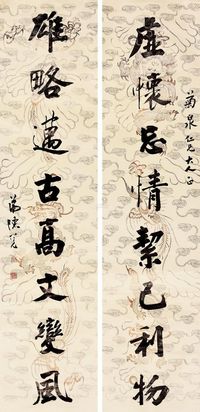 菊泉仁兄大人正
虛懷忘情絜己利物
雄略邁古高文變風